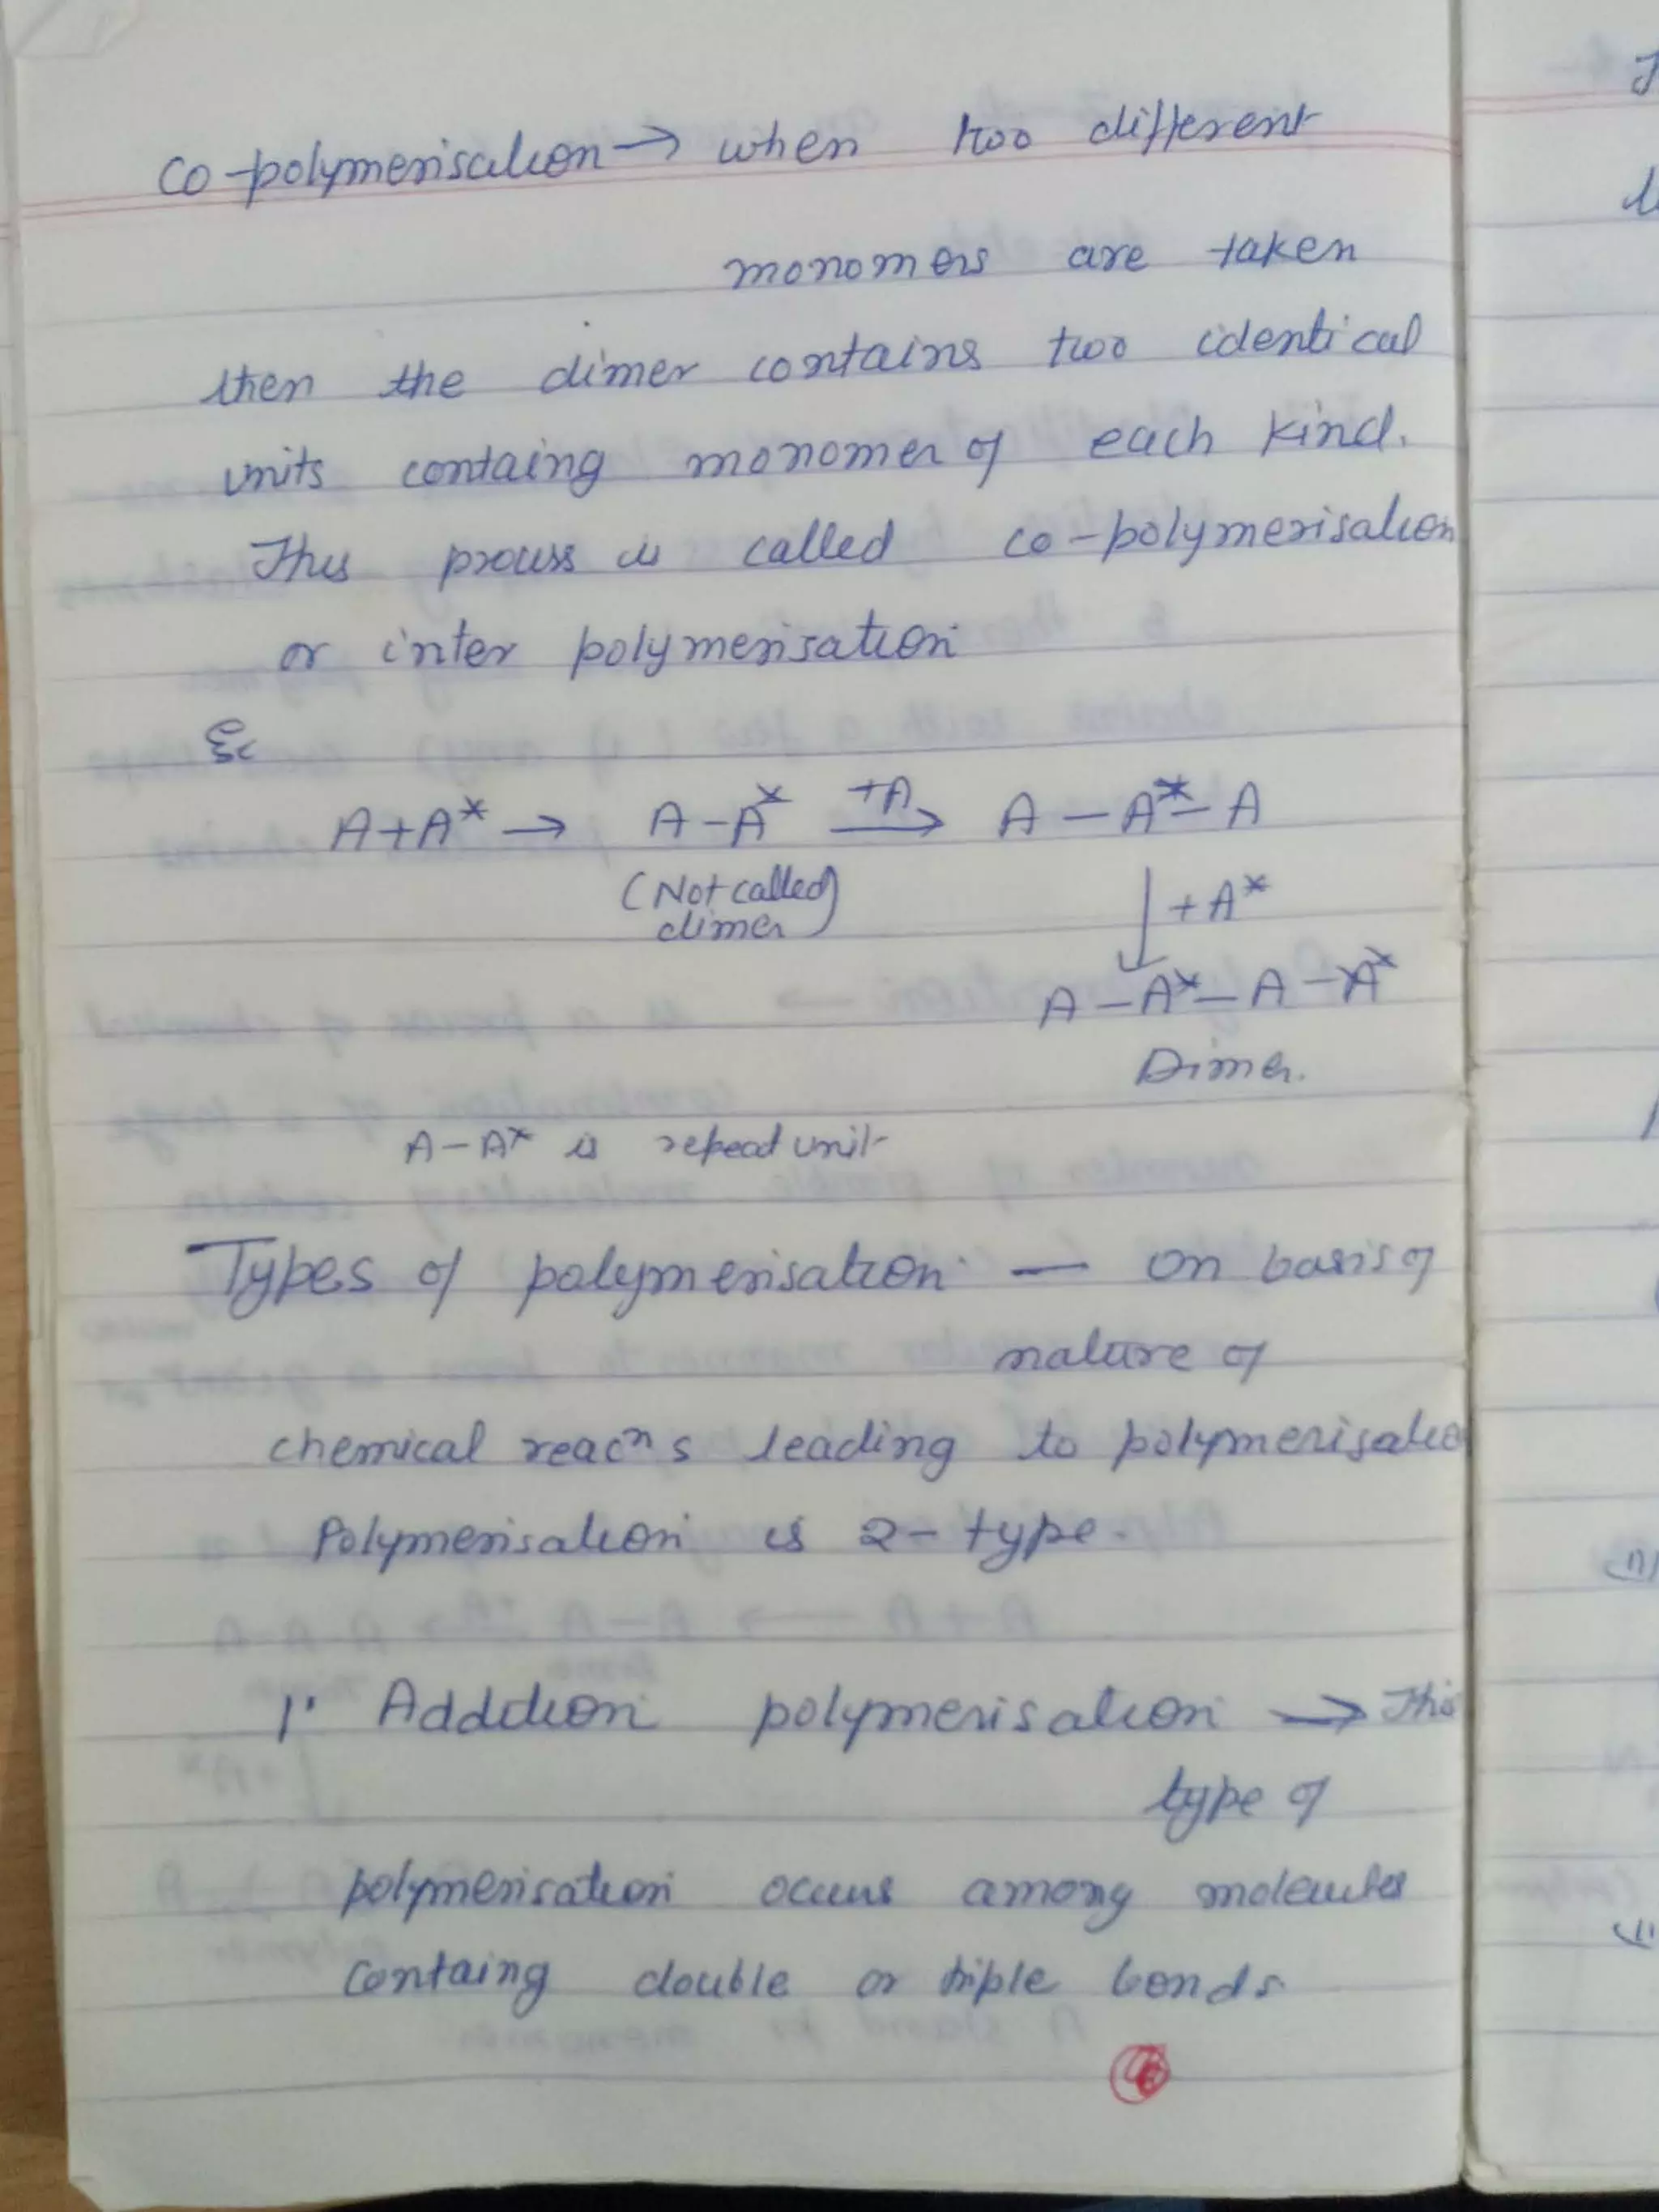 Co-polymerisation → when two different
monomers are taken
then the dimer contains two identical
units containg monomer of each kind.
This process is called co-polymerisation
or inter polymerisation
Ex
A+A* → A-A* +A→ A-A*-A
(Not called dimer)
↓ +A*
A-A*-A-A*
Dimer.
A-A* is repeat unit
Types of polymerisation — on basis of
nature of
chemical reacⁿs leading to polymerisatio
Polymerisation is 2-type.
1. Addition polymerisation → This
type of
polymerisation occurs among molecules
containg double or triple bonds